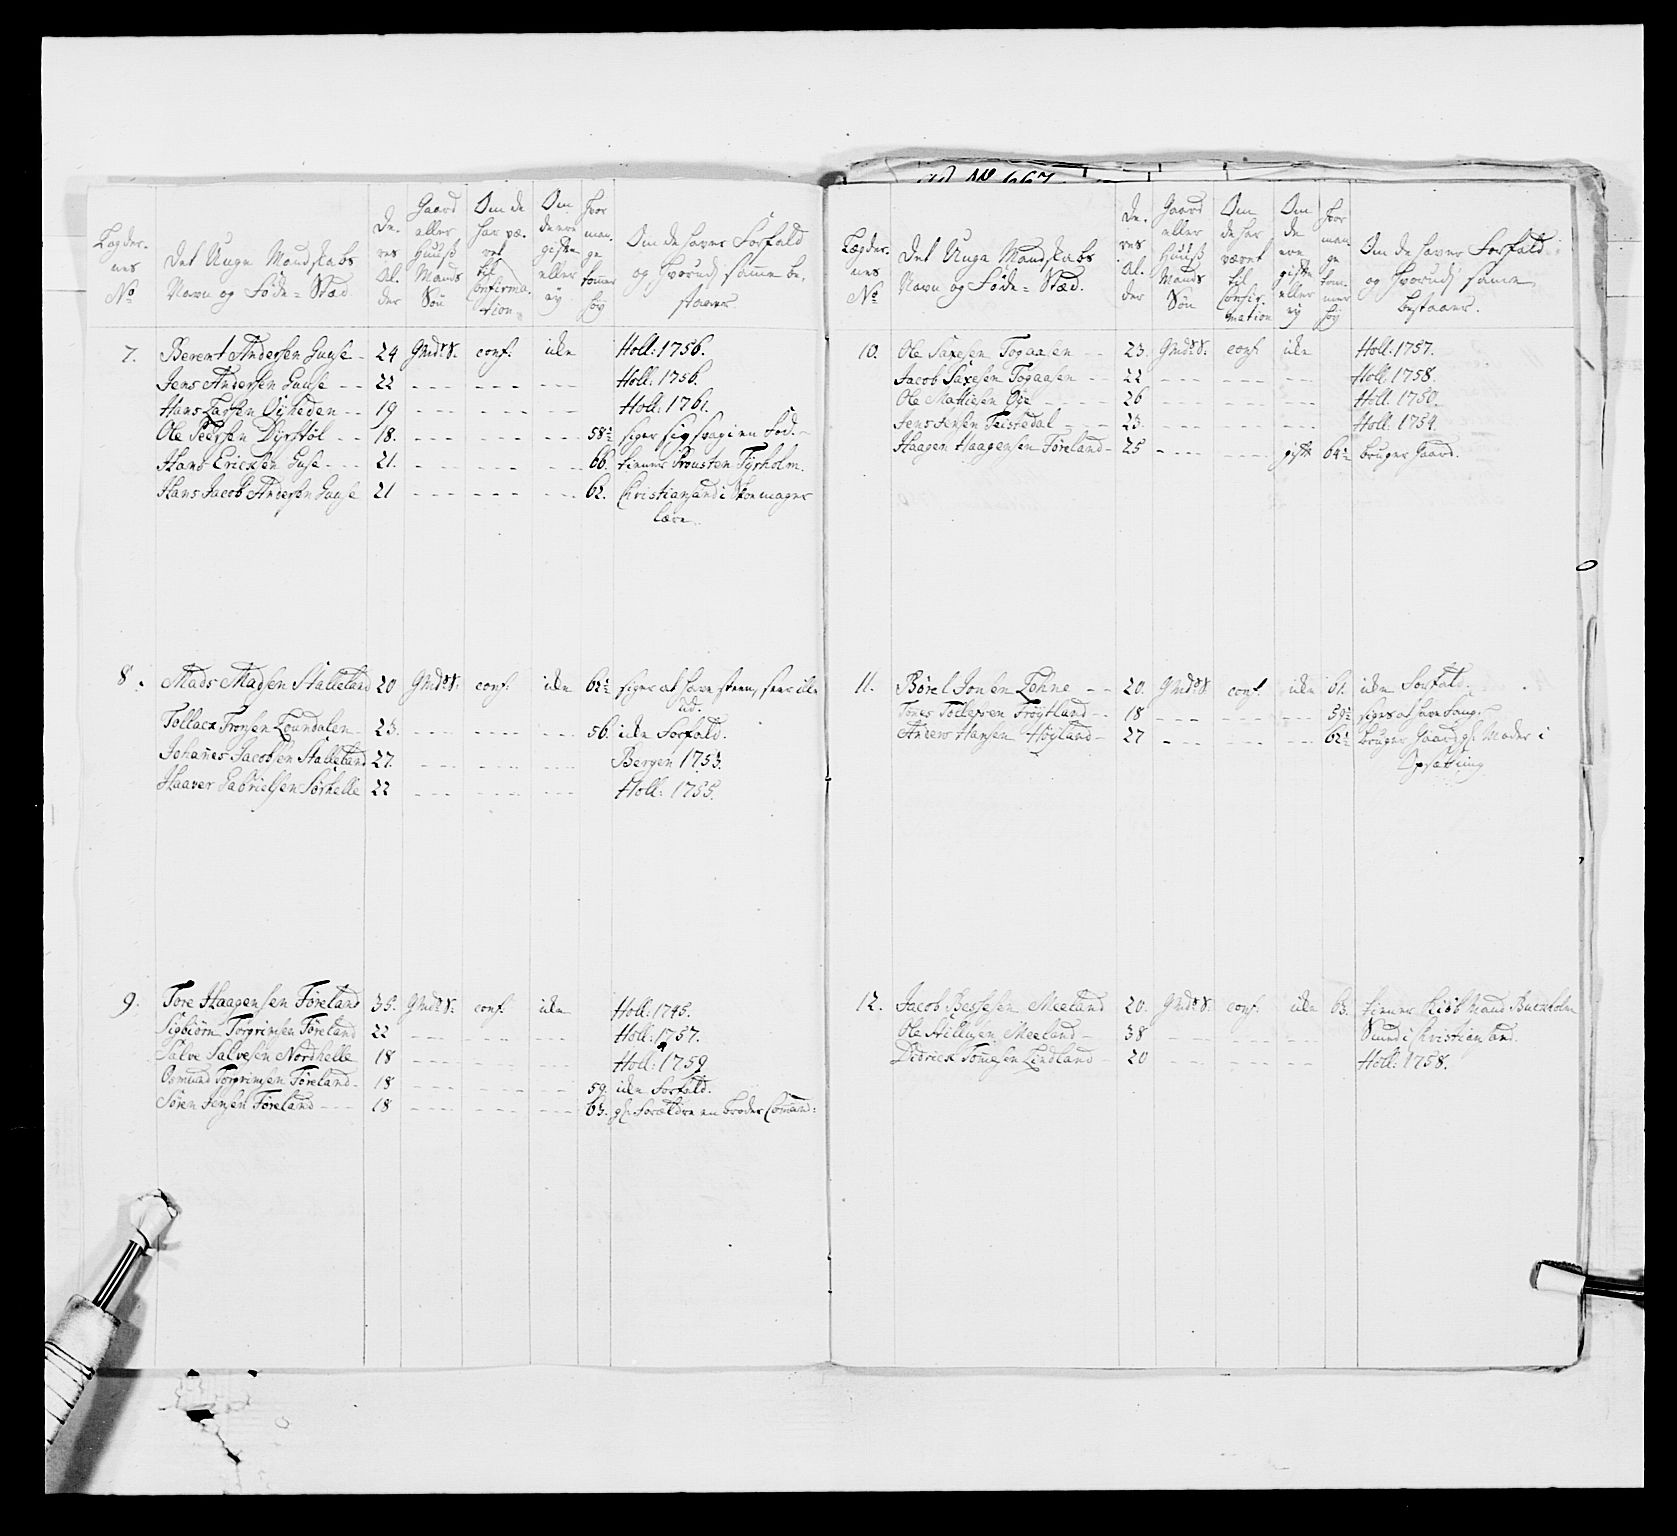 Lægder-
nes
No
Det Unge Mandskabs
Navn og Føde-Stæd
De-
res
Al-
der
Gaard
eller
Huuß
Mands
Søn
Om de
har væ-
ret
til
Confirma-
tion
Om
de ere
gifte
eller
ey
Hvor
man-
ge
tommer
høy
Om de haver Forfald
og hvorudj samme be-
staaer
7. Berent Andersen Guuse - 24 Gmds S. conf. icke Holl: 1756.
Jens Andersen Guuse - - 22 Holl: 1756.
Hans Larsen Viheden - - 19 Holl: 1761.
Ole Pedersen Dyrstøl - - 18. 58½ siger sig svag i en Fod.
Hans Ericksen Guse - - 21. 66. tiener Prousten Tyrholm.
Hans Jacob Andersen Guuse 21 62. Christiansand i Skomager
lære.
8. Mads Madsen Stalleland 20 Gmds S. conf. icke 62½ siger at have steen, seer ilde
ud.
Tollack Tronsen Loundalen - 23. 56. icke Forfald.
Johanes Jacobsen Stalleland 27. Bergen 1753.
Haaver Gabrielsen Sørhelle 22 Holl: 1755.
9. Tore Haagensen Føreland 35. Gmds S. conf. icke Holl: 1745.
Sigbiørn Torgrimsen Føreland 22 Holl: 1757.
Salve Salvesen Nordhelle 18 Holl: 1759
Osmund Torgrimsen Føreland - 18 59. icke Forfald.
Søren Jensen Føreland - - - 18 63. gl. Forældre en broder Comand:
Lægder-
nes
No
Det Unge Mandskabs
Navn og Føde-Stæd.
De-
res
Al-
der
Gaard
eller
Huuß
Mands
Søn
Om
de har
været
til
Confir-
mation
Om
de
ere
gifte
eller
ey
Hvor
man-
ge
tom-
mer
høy
Om de haver Forfald
og hvorudj samme
bestaaer.
10. Ole Saxesen Togaasen - - 23. Gmds S. conf icke Holl: 1757.
Jacob Saxesen Togaasen - - 22 Holl: 1758.
Ole Mathiesen Øye - - - 26 Holl: 1750.
Jens Jensen Teistedal - - 23. Holl: 1754.
Haagen Haagensen Føreland - 25 gift 64½ bruger Gaard.
11. Børel Jonsen Lohne - - 20. Gmds S. conf. icke 61. icke Forfald.
Tønes Tollefsen Trøytland - - 18 59½ siges at have
Anders Hansen Høyland - 27 62½ bruger Gaard gl. Moder i
Opsætting
12. Jacob Bessesen Meeland 20. Gmds S. conf. icke 63. tiener Kiøbmand
Ole Meeland - 38 Sund i Christiansand.
Didrick Tomesen Lindland - 20 Holl: 1758.